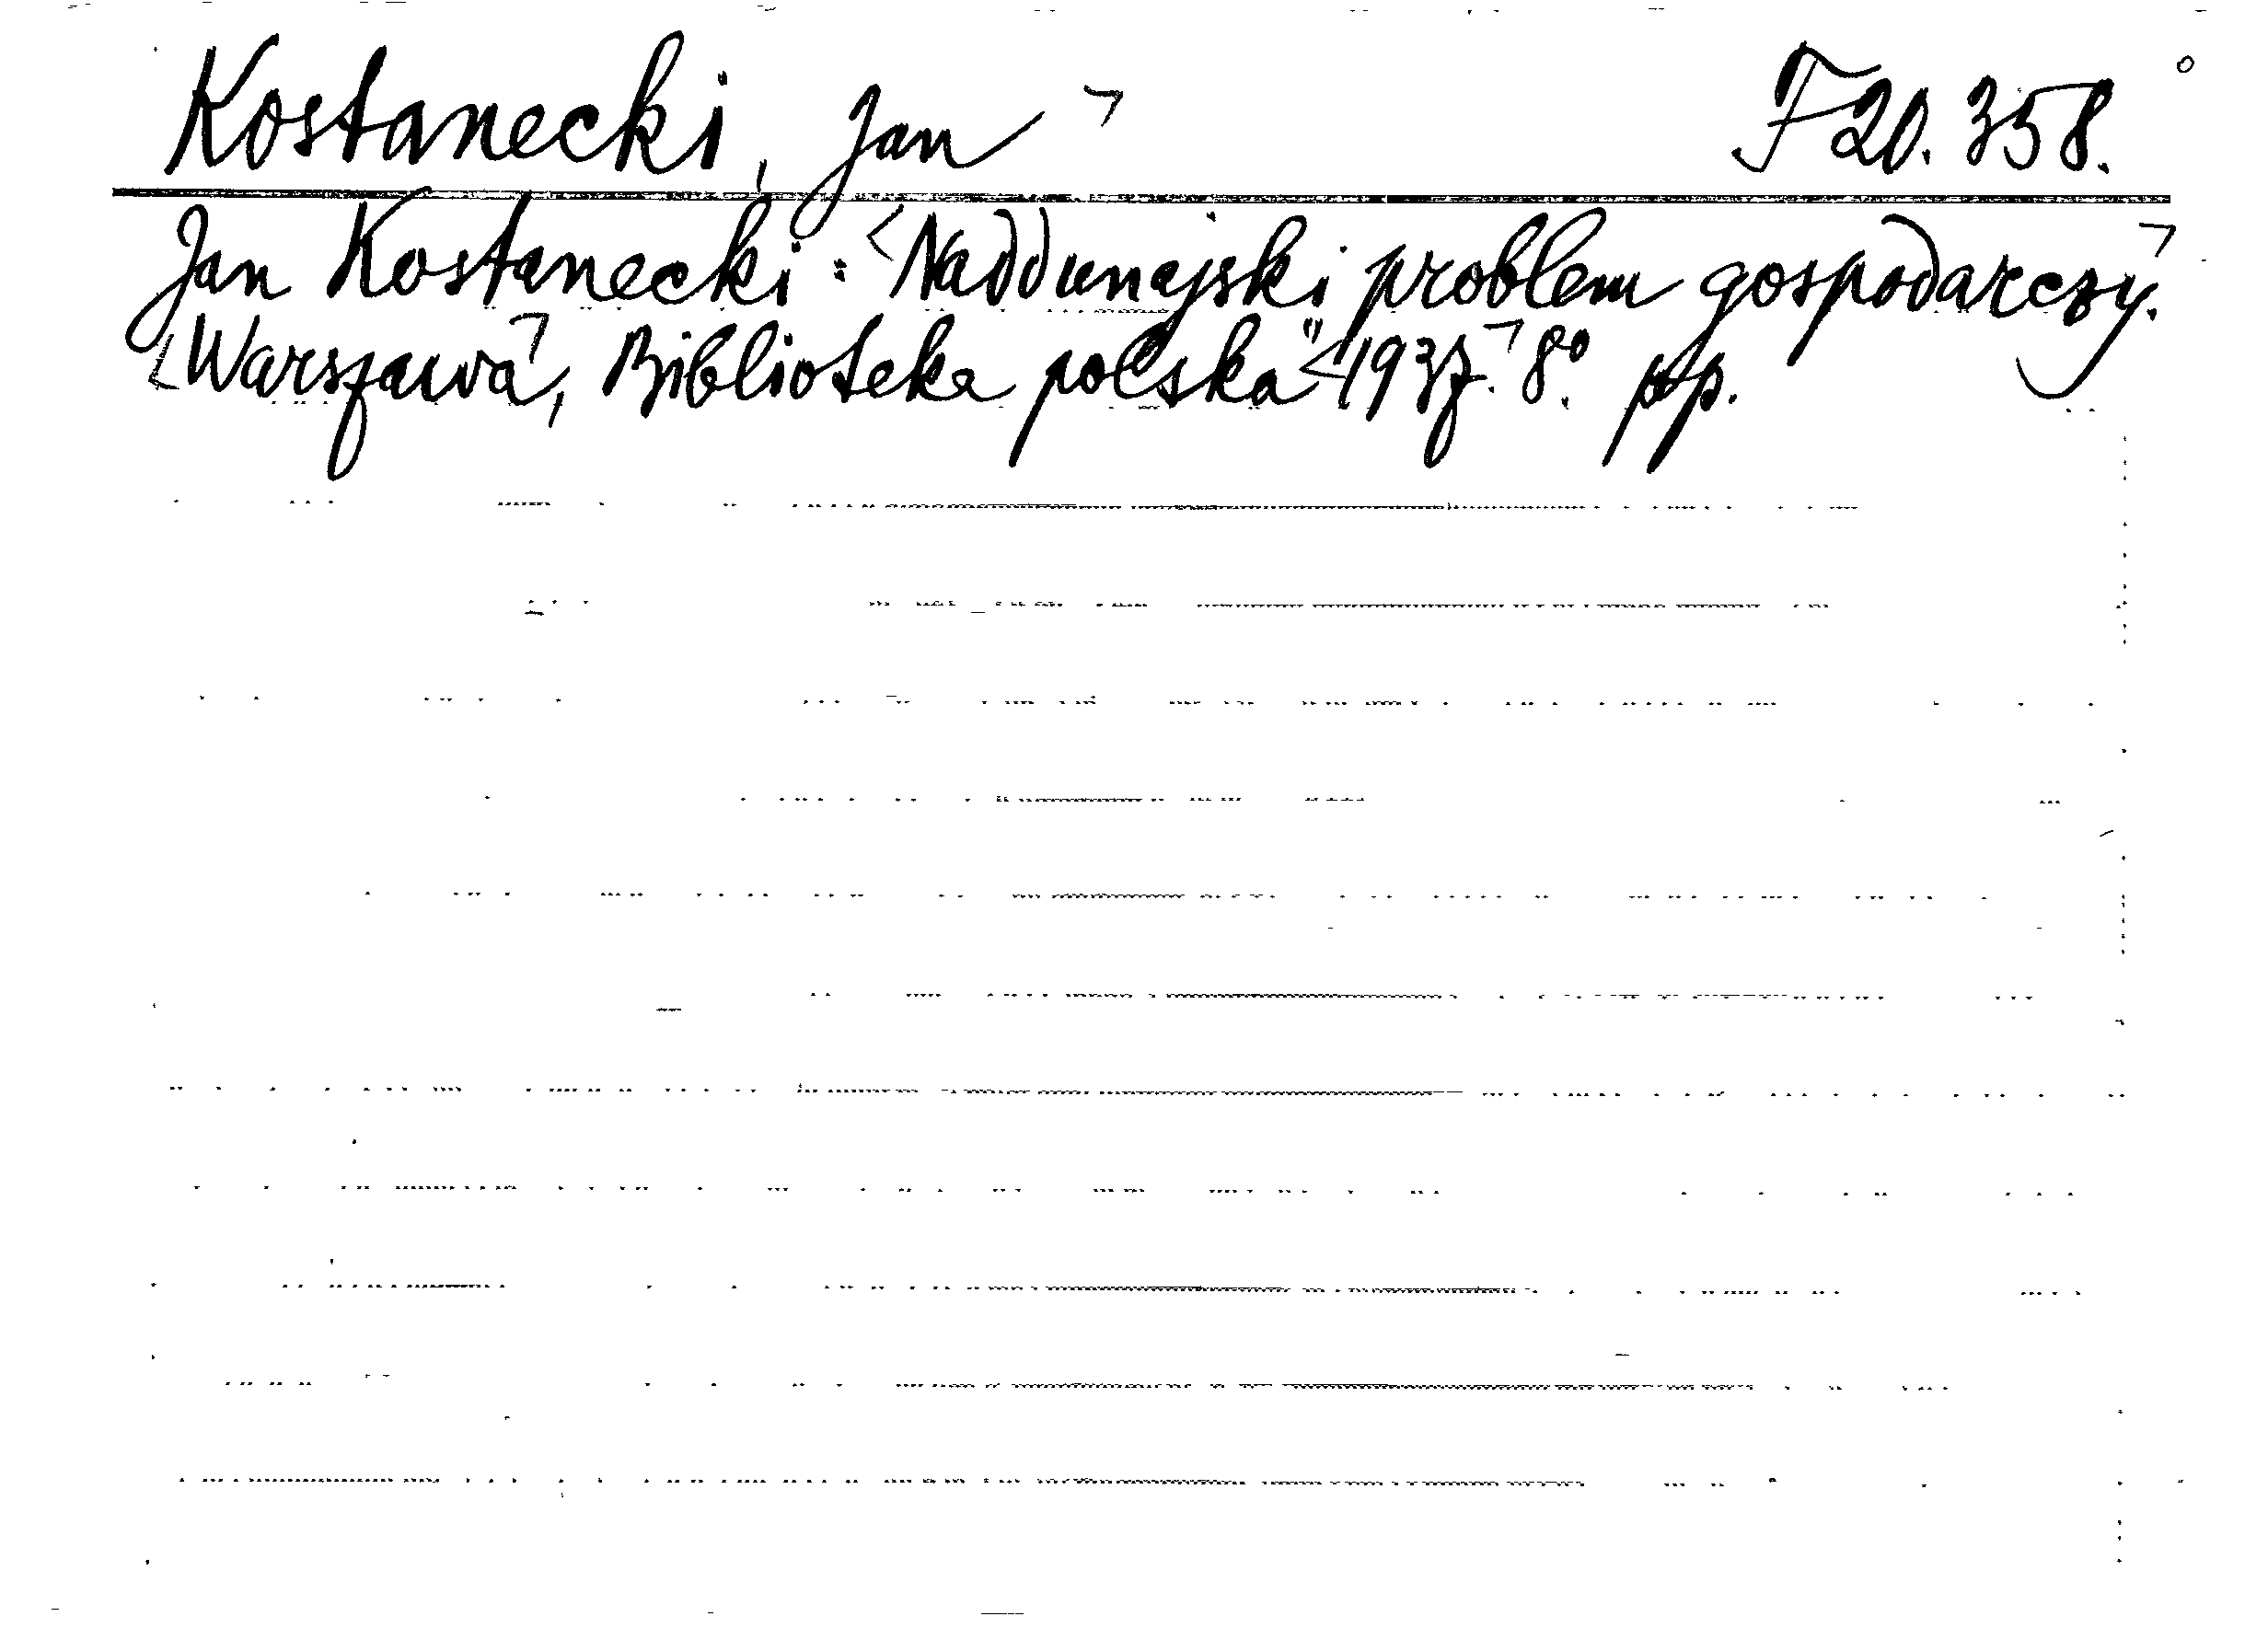 Kostanecki, Jan ⌝ F 20. 358.
Jan Kostanecki: <Naddunajski problem gospodarczy.⌝
<Warszawa⌝, Biblioteka polska" <1937.⌝ 8°. pp.